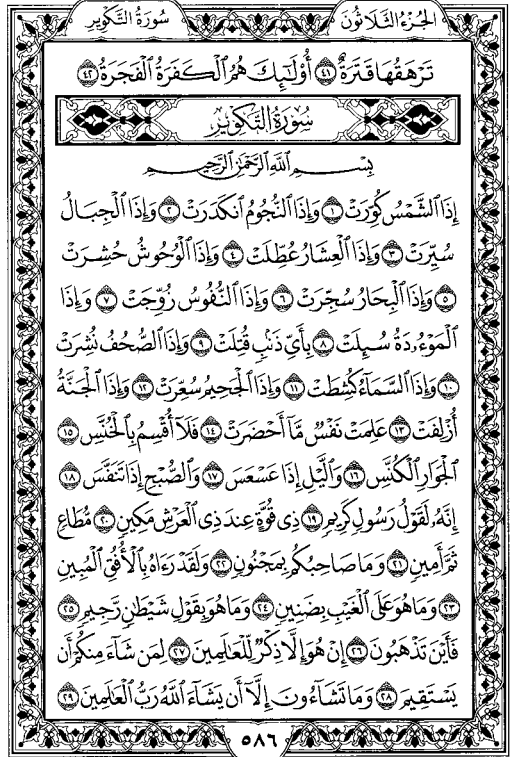 الجزء الثلاثون
سورة التكوير
تَرْهَقُهَا قَتَرَةٌ ٤١ أُوْلَٰٓئِكَ هُمُ ٱلْكَفَرَةُ ٱلْفَجَرَةُ ٤٢
سُورَةُ التَّكْوِيرِ
بِسْمِ ٱللَّهِ ٱلرَّحْمَٰنِ ٱلرَّحِيمِ
إِذَا ٱلشَّمْسُ كُوِّرَتْ ١ وَإِذَا ٱلنُّجُومُ ٱنكَدَرَتْ ٢ وَإِذَا ٱلْجِبَالُ
سُيِّرَتْ ٣ وَإِذَا ٱلْعِشَارُ عُطِّلَتْ ٤ وَإِذَا ٱلْوُحُوشُ حُشِرَتْ
٥ وَإِذَا ٱلْبِحَارُ سُجِّرَتْ ٦ وَإِذَا ٱلنُّفُوسُ زُوِّجَتْ ٧ وَإِذَا
ٱلْمَوْءُۥدَةُ سُئِلَتْ ٨ بِأَيِّ ذَنۢبٍ قُتِلَتْ ٩ وَإِذَا ٱلصُّحُفُ نُشِرَتْ
١٠ وَإِذَا ٱلسَّمَآءُ كُشِطَتْ ١١ وَإِذَا ٱلْجَحِيمُ سُعِّرَتْ ١٢ وَإِذَا ٱلْجَنَّةُ
أُزْلِفَتْ ١٣ عَلِمَتْ نَفْسٌ مَّآ أَحْضَرَتْ ١٤ فَلَآ أُقْسِمُ بِٱلْخُنَّسِ ١٥
ٱلْجَوَارِ ٱلْكُنَّسِ ١٦ وَٱلَّيْلِ إِذَا عَسْعَسَ ١٧ وَٱلصُّبْحِ إِذَا تَنَفَّسَ ١٨
إِنَّهُۥ لَقَوْلُ رَسُولٍ كَرِيمٍ ١٩ ذِي قُوَّةٍ عِندَ ذِي ٱلْعَرْشِ مَكِينٍ ٢٠ مُّطَاعٍ
ثَمَّ أَمِينٍ ٢١ وَمَا صَاحِبُكُم بِمَجْنُونٍ ٢٢ وَلَقَدْ رَءَاهُ بِٱلْأُفُقِ ٱلْمُبِينِ
٢٣ وَمَا هُوَ عَلَى ٱلْغَيْبِ بِضَنِينٍ ٢٤ وَمَا هُوَ بِقَوْلِ شَيْطَٰنٍ رَّجِيمٍ ٢٥
فَأَيْنَ تَذْهَبُونَ ٢٦ إِنْ هُوَ إِلَّا ذِكْرٌ لِّلْعَٰلَمِينَ ٢٧ لِمَن شَآءَ مِنكُمْ أَن
يَسْتَقِيمَ ٢٨ وَمَا تَشَآءُونَ إِلَّآ أَن يَشَآءَ ٱللَّهُ رَبُّ ٱلْعَٰلَمِينَ ٢٩
٥٨٦